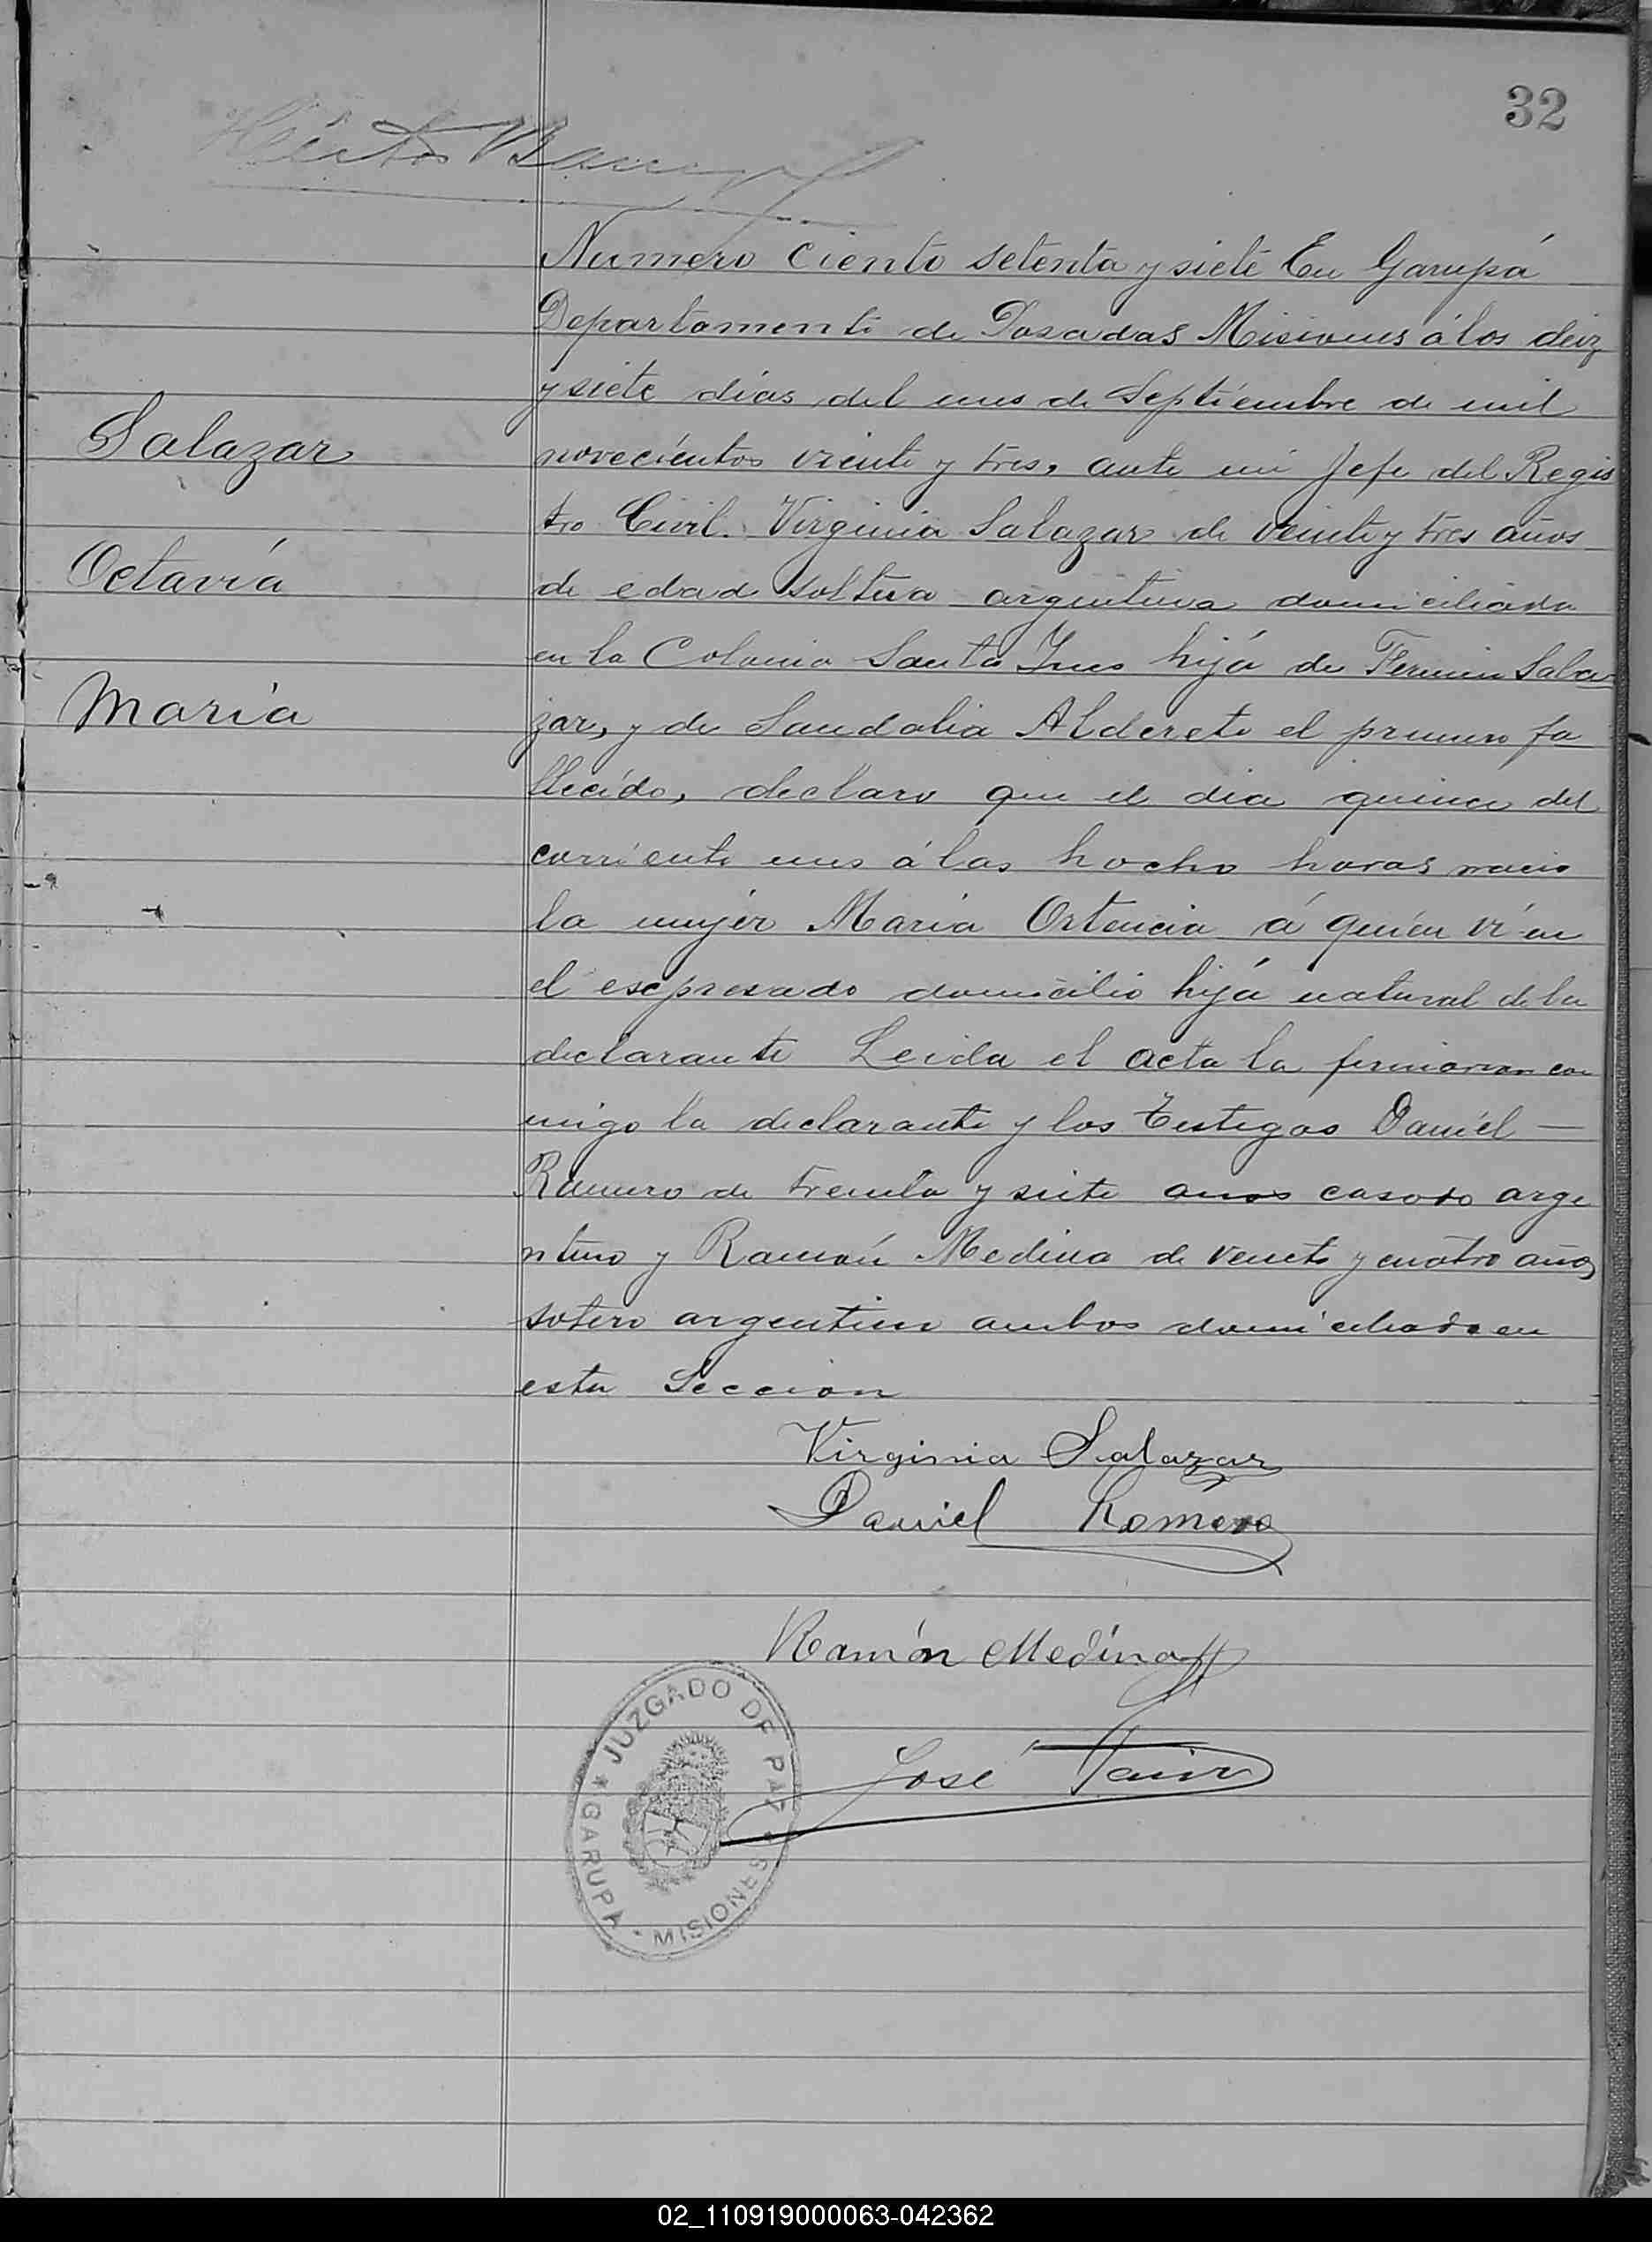 32
Héctor
Numero Ciento setenta y siete En Garupá
Departamento de Posadas Misiones á los diez
y siete días del mes de Septiembre de mil
Salazar
novecientos viente y tres, ante mi Jefe del Regis
tro Civil. Virginia Salazar de veinte y tres años
Octavia
de edad soltera argentina domiciliada
en la Colonia Santa Ines hijá de Fermin Sala
María
zar, y de Sandalia Alderete el primero fa
llecido, declaro que el dia quince del
corriente mes á las hocho horas nacio
la mujer María Ortencia á quién ví en
el escpresado domicilio hijá natural de la
declarante Leida el acta la firmaron con
migo la declarante y los testigos Daniel —
Romero de treinta y siete anos casado arge
ntino y Ramón Medina de veinte y cuatro años
sotero argentino ambos domiciliado en
esta Seccion
Virginia Salazar
Daniel Romero
Ramón Medina
José
JUZGADO DE PAZ
GARUPA - MISIONES
02_110919000063-042362